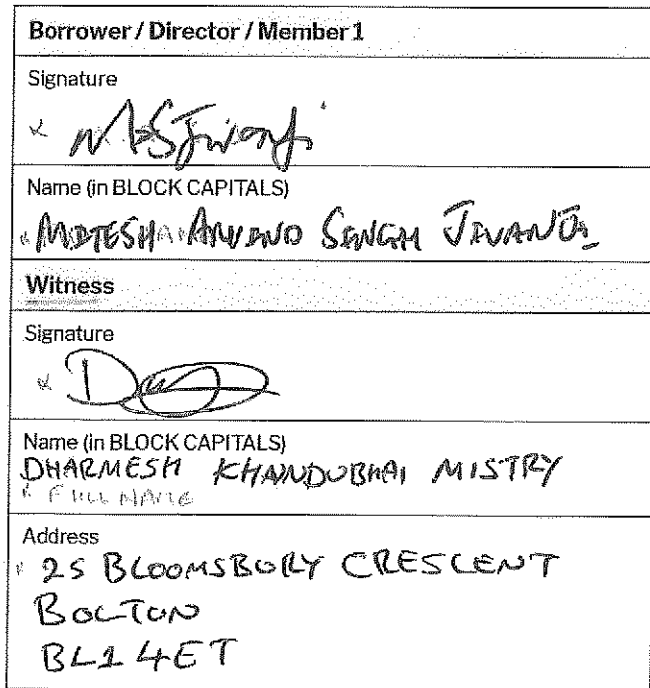 Borrower / Director / Member 1
Signature
Name (in BLOCK CAPITALS)
MITESH ARVIND SINGH JIVANJI
Witness
Signature
Name (in BLOCK CAPITALS)
DHARMESH KHANDUBHAI MISTRY
FULL NAME
Address
25 BLOOMSBURY CRESCENT
BOLTON
BL1 4ET